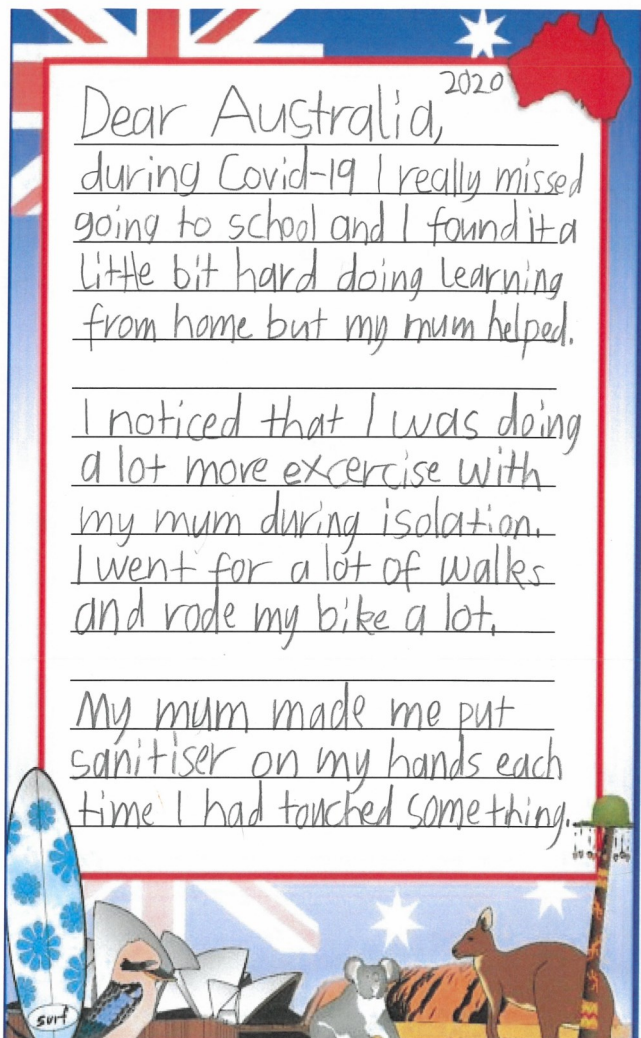 2020
Dear Australia,
during Covid-19 I really missed
going to school and I found it a
little bit hard doing learning
from home but my mum helped.
I noticed that I was doing
a lot more excercise with
my mum during isolation.
I went for a lot of walks
and rode my bike a lot.
My mum made me put
sanitiser on my hands each
time I had touched something.
surf